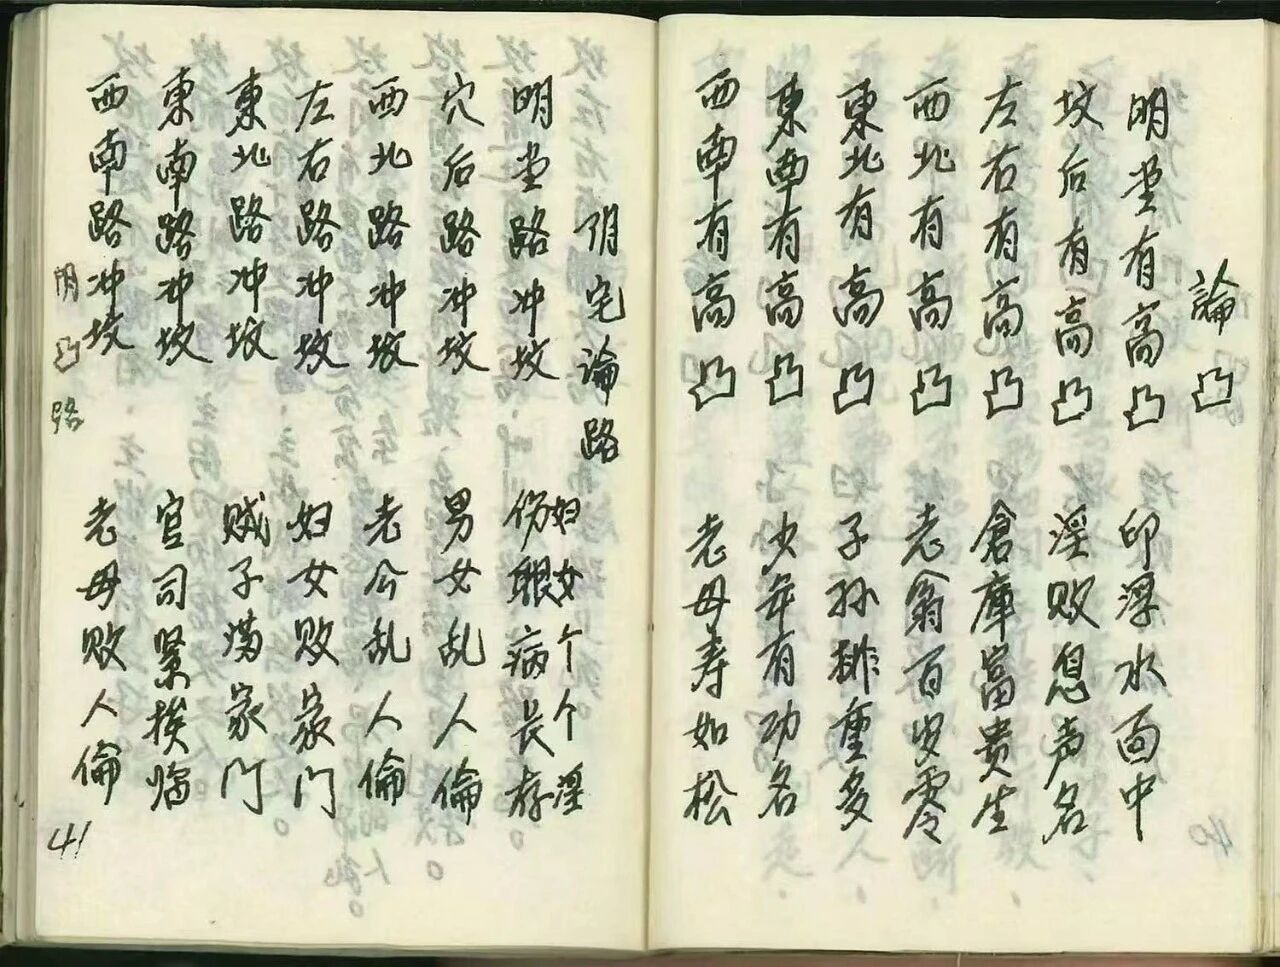 論凸
明堂有高凸 印浮水面中
坟后有高凸 淫败息声名
左右有高凸 倉庫富贵生
西北有高凸 老翁百岁零
東北有高凸 子孙排重多
東南有高凸 少年有功名
西南有高凸 老母寿如松
阴宅論路
明堂路冲坟 妇女个个淫
伤眼病長存
穴后路冲坟 男女乱人倫
西北路冲坟 老公乱人倫
左右路冲坟 妇女败家门
東北路冲坟 贼子满家门
東南路冲坟 官司紧挨临
西南路冲坟 老母败人倫
阴凸路
41
40